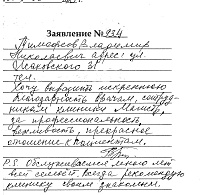 Заявление № 934
Владимир
Николаевич адрес: ул.
тел.
Хочу выразить искреннюю
благодарность врачам, сотруд-
никам клиники
за профессиональность,
вежливость, прекрасное
отношение к пациентам.
P.S. Обслуживаемся много лет
всей семьёй. Всегда рекомендую
клинику своим знакомым.